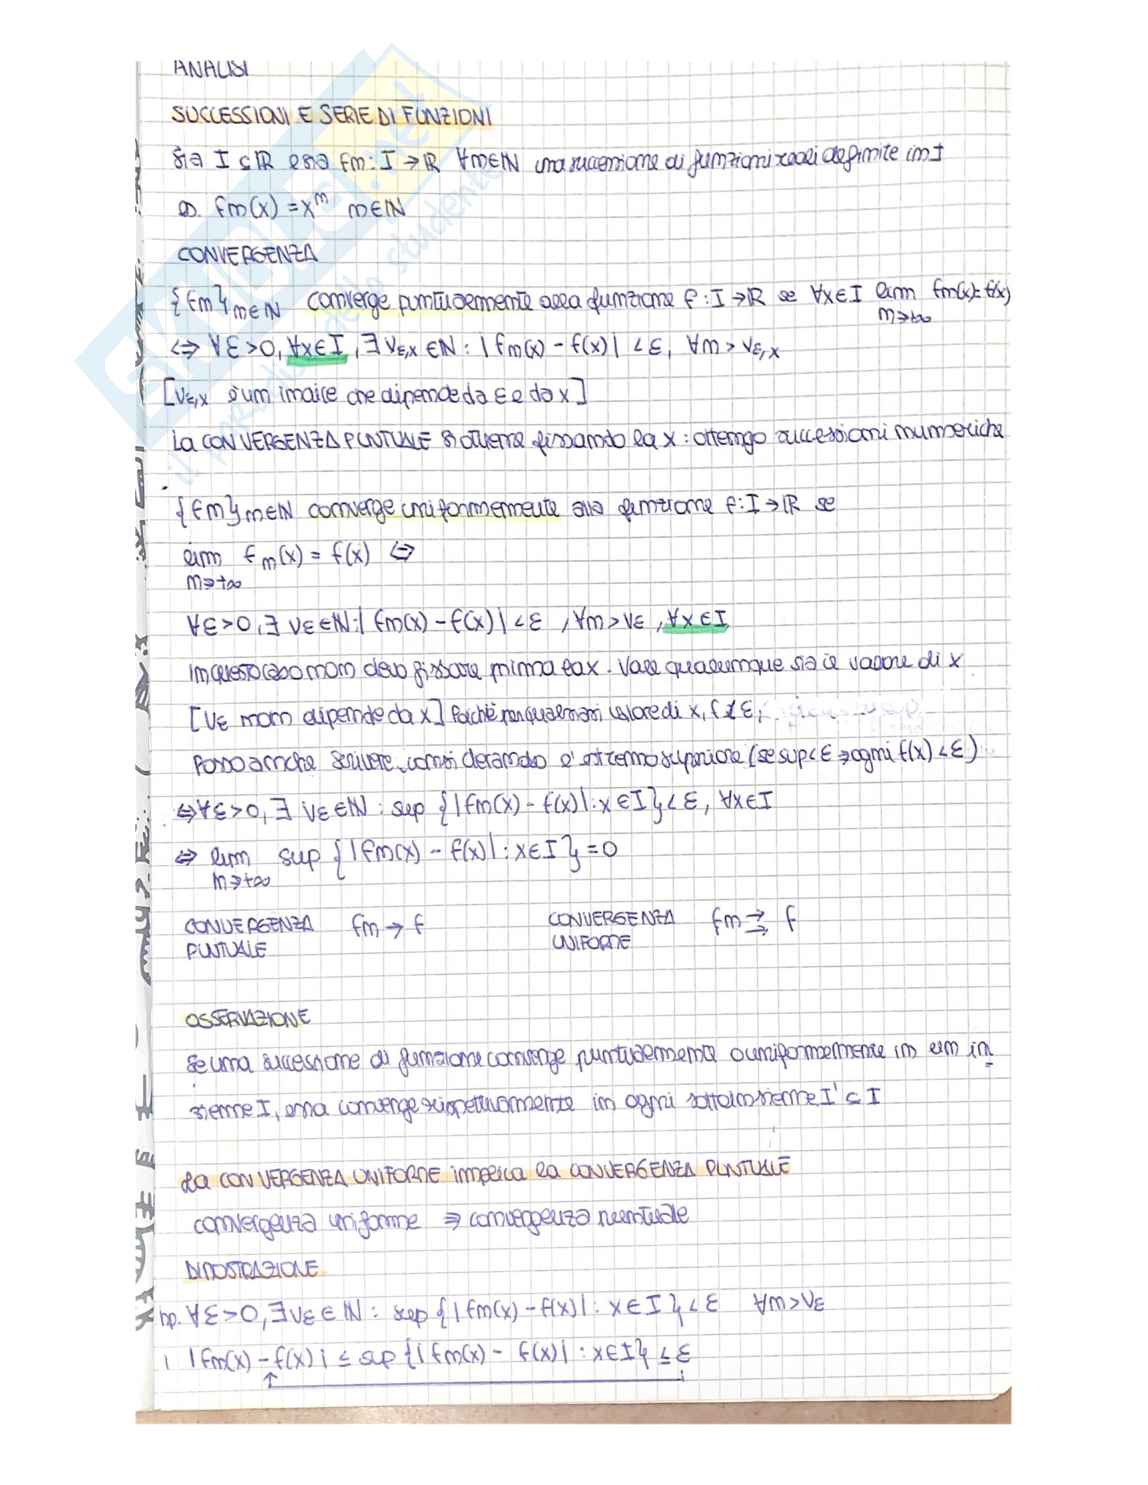 ANALISI
SUCCESSIONI E SERIE DI FUNZIONI
Sia I ⊆ ℝ e sia fn : I → ℝ ∀n∈ℕ una successione di funzioni reali definite in I
es. fn(x) = xⁿ n∈ℕ
CONVERGENZA
{fn}n∈ℕ converge puntualmente alla funzione f : I → ℝ se ∀x∈I lim fn(x) = f(x)
n→+∞
⇔ ∀ε>0, ∀x∈I, ∃ νε,x ∈ℕ : |fn(x) - f(x)| < ε, ∀n > νε,x
[νε,x è un indice che dipende da ε e da x]
La CONVERGENZA PUNTUALE si ottiene fissando la x : ottengo successioni numeriche
{fn}n∈ℕ converge uniformemente alla funzione f : I → ℝ se
lim fn(x) = f(x) ⇔
n→+∞
∀ε>0, ∃ νε∈ℕ : |fn(x) - f(x)| < ε, ∀n > νε, ∀x∈I
In questo caso non devo fissare prima la x. Vale qualunque sia il valore di x
[νε non dipende da x] Poiché per qualsiasi valore di x,
Posso anche scrivere, considerando l'estremo superiore (se sup<ε ⇒ ogni f(x) < ε)
⇔ ∀ε>0, ∃ νε∈ℕ : sup {|fn(x) - f(x)| : x∈I} < ε, ∀x∈I
⇔ lim sup {|fn(x) - f(x)| : x∈I} = 0
n→+∞
CONVERGENZA fn → f CONVERGENZA fn ⇉ f
PUNTUALE UNIFORME
OSSERVAZIONE
Se una successione di funzione converge puntualmente o uniformemente in un in
sieme I, essa converge rispettivamente in ogni sottoinsieme I' ⊆ I
La CONVERGENZA UNIFORME implica la CONVERGENZA PUNTUALE
convergenza uniforme ⇒ convergenza puntuale
DIMOSTRAZIONE
hp. ∀ε>0, ∃ νε∈ℕ : sup {|fn(x) - f(x)| : x∈I} < ε ∀n > νε
|fn(x) - f(x)| ≤ sup {|fn(x) - f(x)| : x∈I} ≤ ε